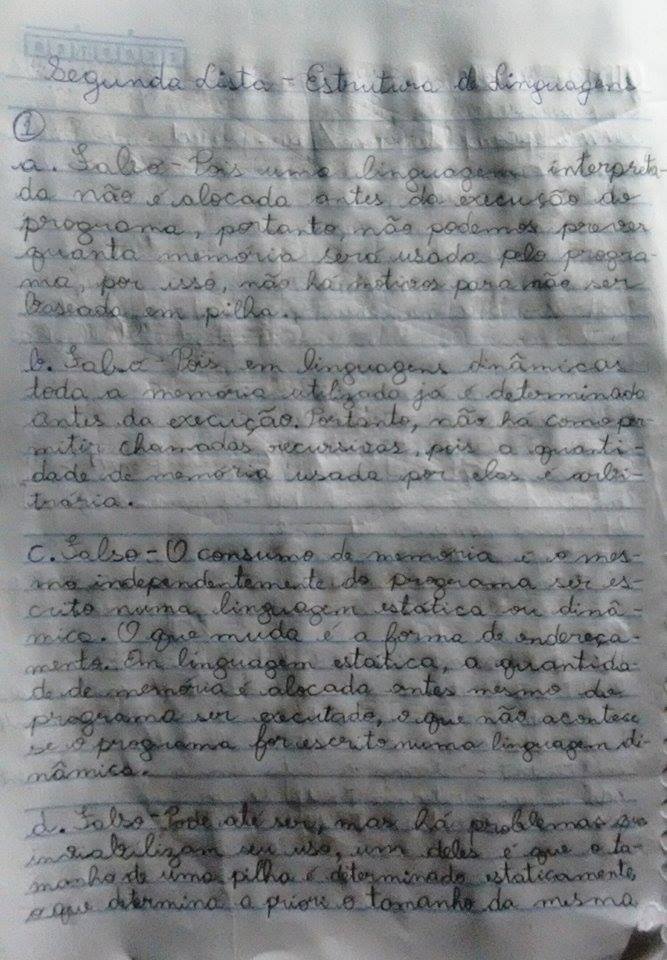 Segunda Lista - Estrutura de Linguagens
1
a. Falso - Pois uma linguagem interpreta-
da não é alocada antes da execução do
programa, portanto, não podemos prever
quanta memória será usada pelo progra-
ma, por isso, não há motivos para não ser
baseada em pilha.
b. Falso - Pois, em linguagens dinâmicas
toda a memória utilizada já é determinada
antes da execução. Portanto, não há como per-
mitir chamadas recursivas, pois a quanti-
dade de memória usada por elas é arbi-
trária.
c. Falso - O consumo de memória é o mes-
mo independentemente do programa ser es-
crito numa linguagem estática ou dinâ-
mica. O que muda é a forma de endereça-
mento. Em linguagem estática, a quantida-
de de memória é alocada antes mesmo do
programa ser executado, o que não acontece
se o programa for escrito numa linguagem di-
nâmica.
d. Falso - Pode até ser, mas há problemas que
inviabilizam seu uso, um deles é que o ta-
manho de uma pilha é determinado estaticamente,
o que determina a priori o tamanho da mesma